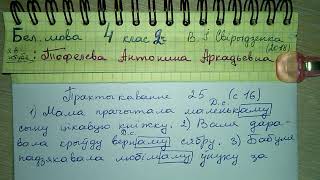 Бел. мова 4 клас 2ч В. І. Свірыдзенка
(2018)
Тюфелева Антонина Аркадьевна
Практыкаванне 25 (с 16)
Д.с.
1) Мама прачытала маленькаму
сыну цікавую кніжку. 2) Ваня дара-
Д.с.
вала крыўду вернаму сябру. 3) Бабуля
падзякавала любімаму унуку за